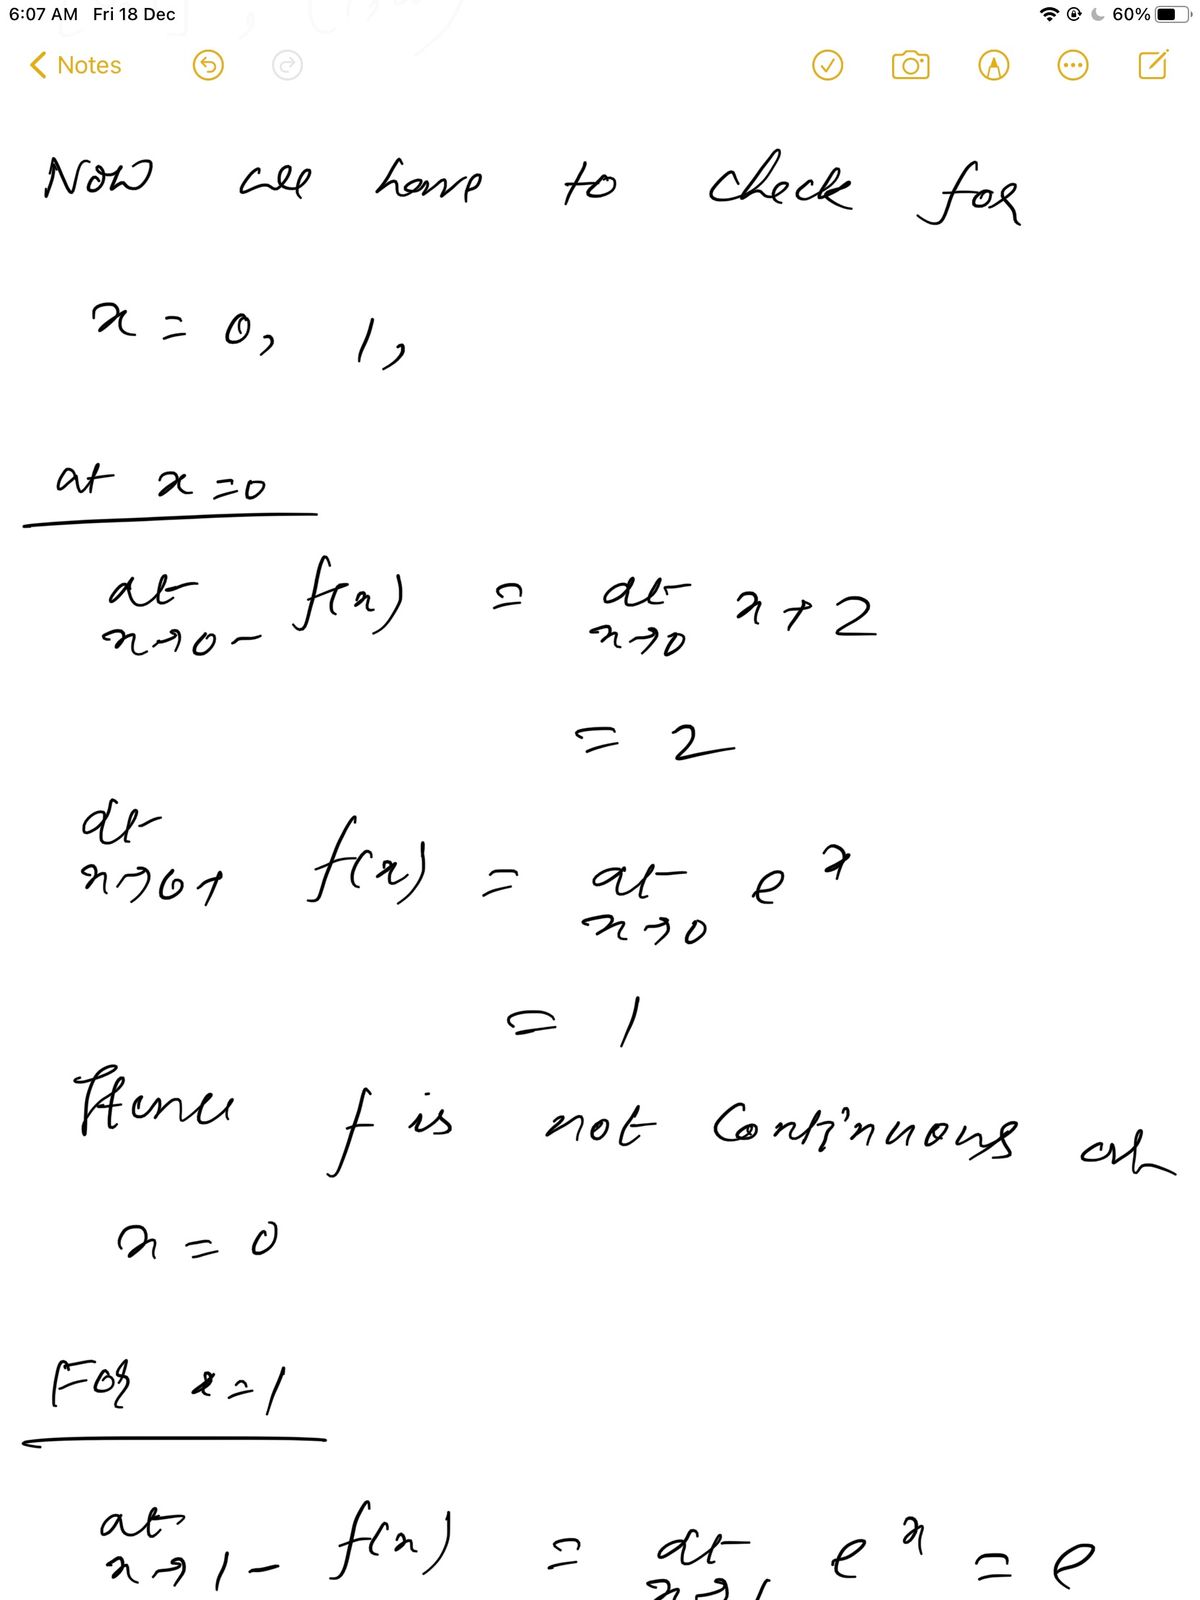 6:07 AM Fri 18 Dec 60%
Notes
Now we have to check for
x = 0, 1,
at x = 0
lt x→0- f(x) = lt x→0 x + 2
= 2
lt x→0+ f(x) = lt x→0 e^x
= 1
Hence f is not continuous at
x = 0
For x = 1
lt x→1- f(x) = lt x→1 e^x = e